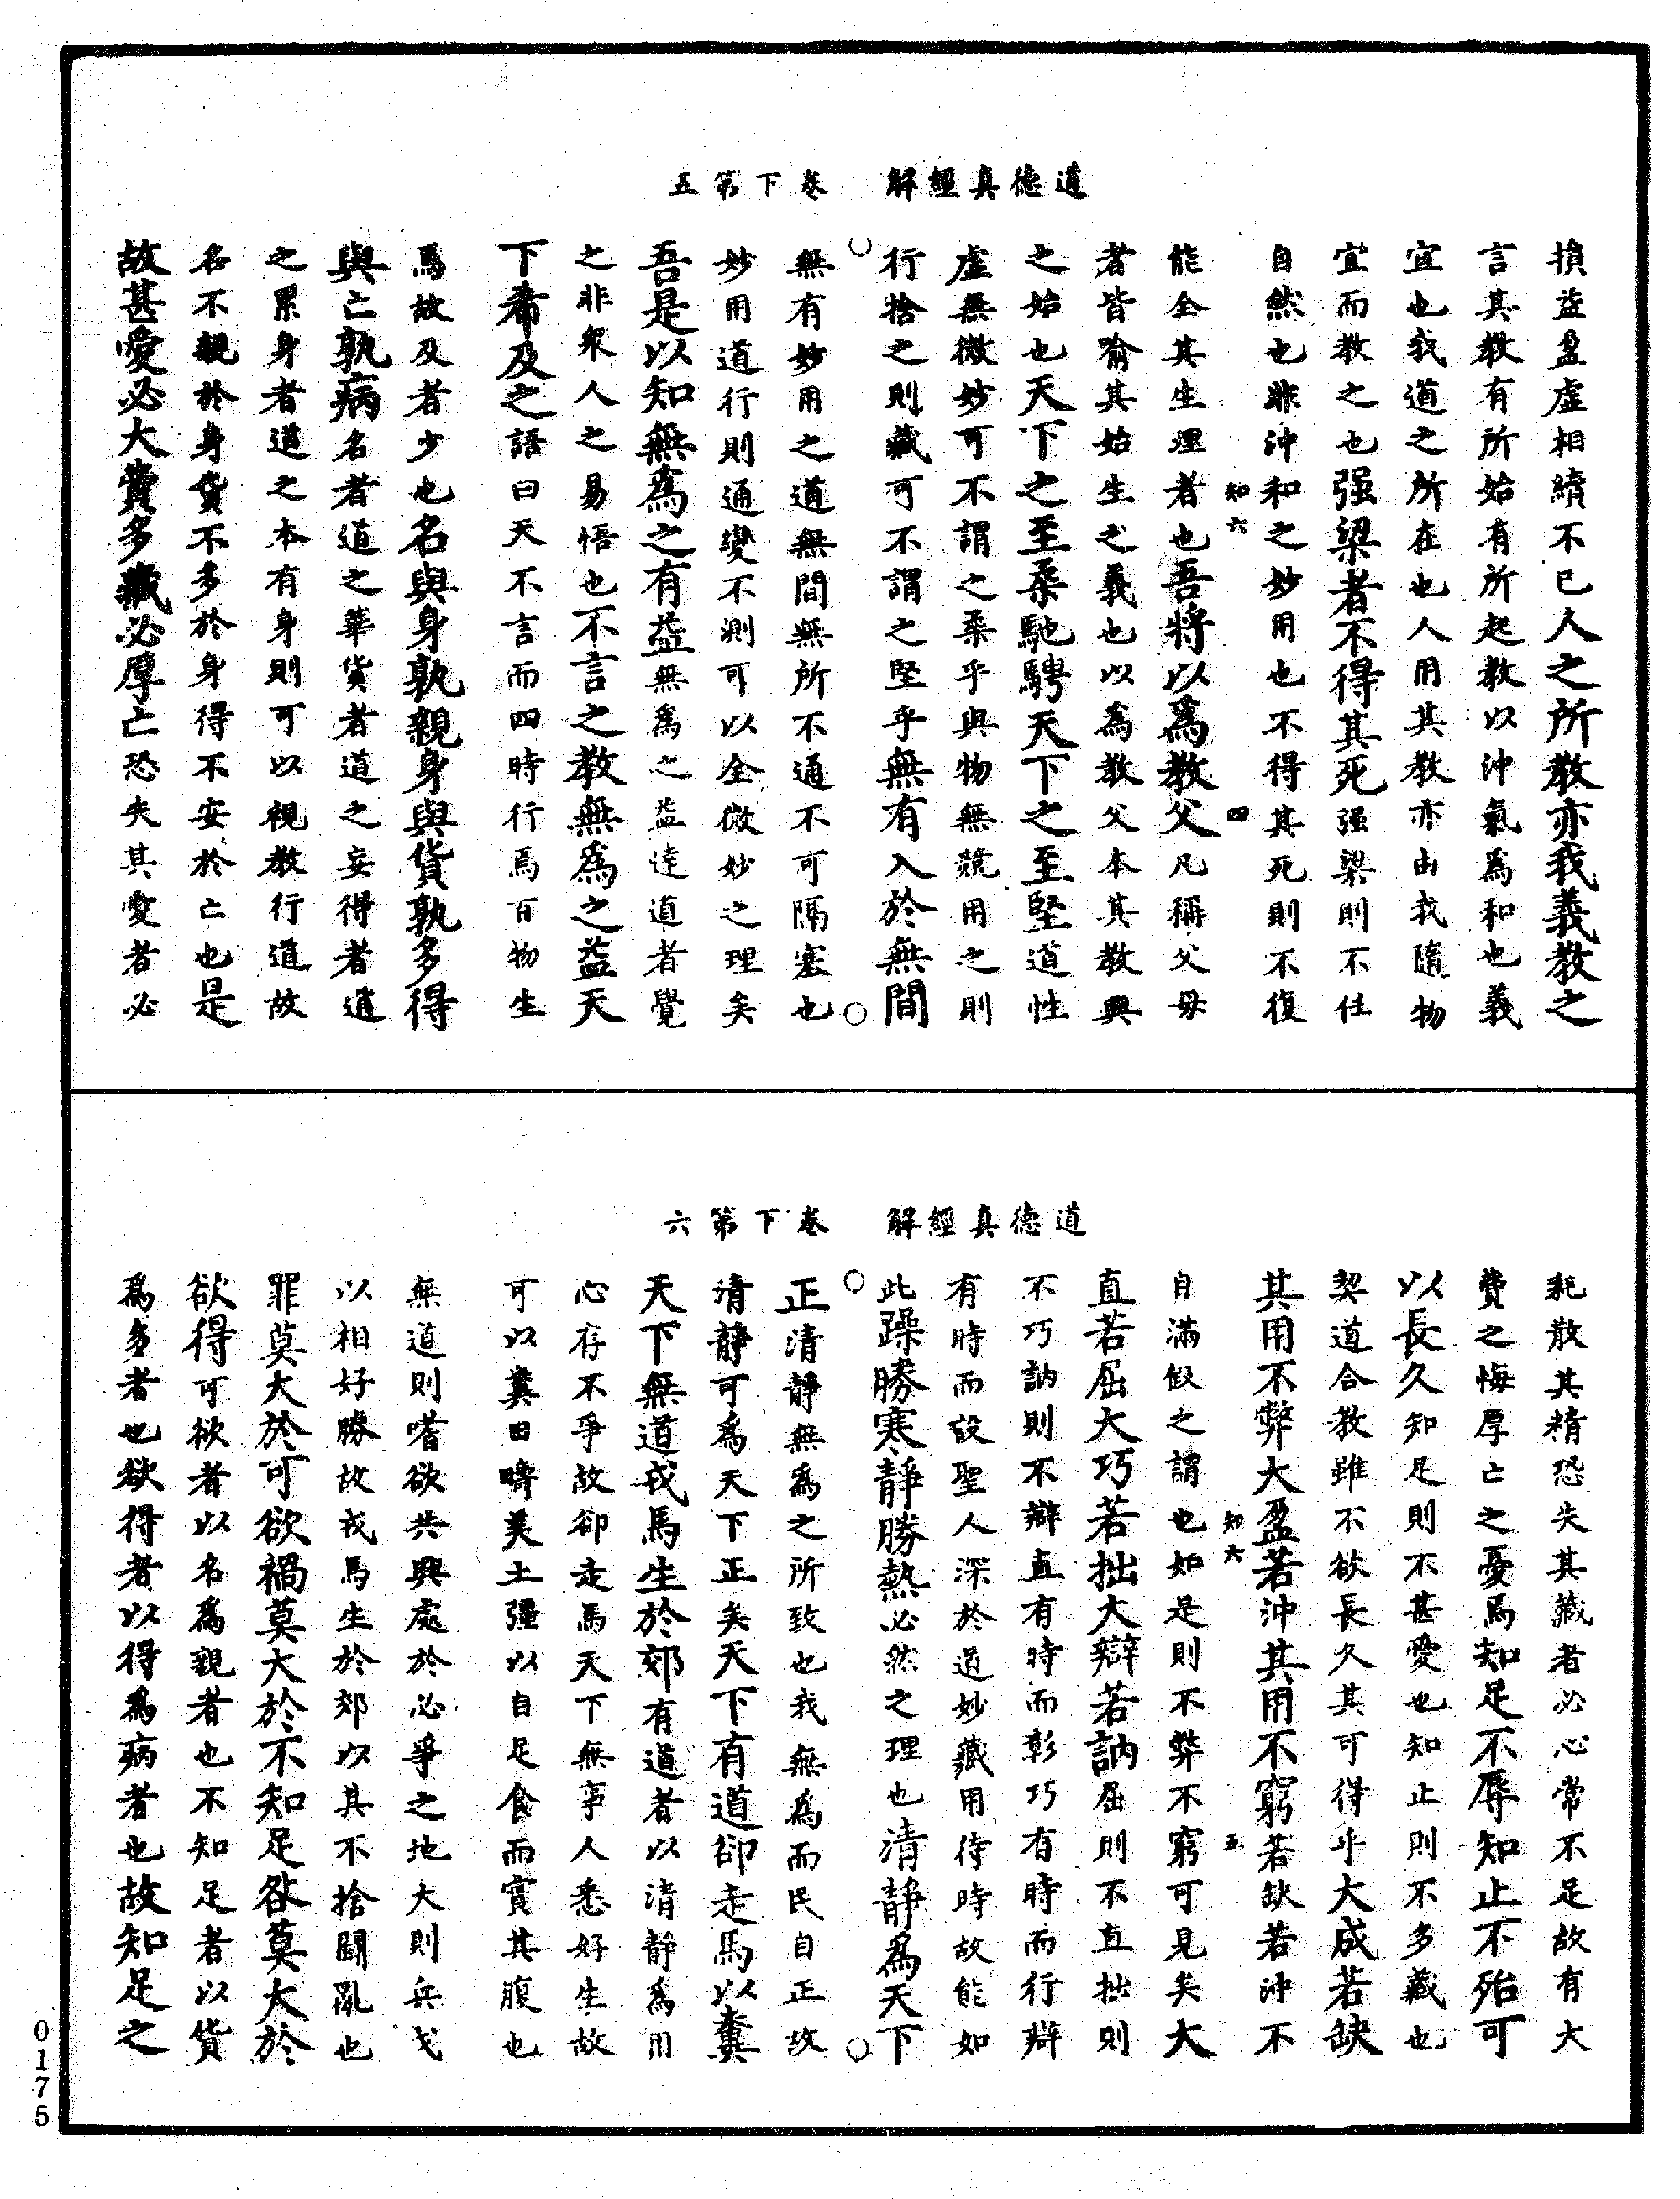 道德真經解　卷下第五
損益盈虛相續不已人之所教亦我義教之
言其教有所始有所起教以沖氣爲和也義
宜也我道之所在也人用其教亦由我隨物
宜而教之也强梁者不得其死强梁則不任
自然也非沖和之妙用也不得其死則不復
知六　四
能全其生理者也吾將以爲教父凡稱父母
者皆喻其始生之義也以爲教父本其教興
之始也天下之至柔馳騁天下之至堅道性
虛無微妙可不謂之柔乎與物無競用之則
行捨之則藏可不謂之堅乎無有入於無間
無有妙用之道無間無所不通不可隔塞也
妙用道行則通變不測可以全微妙之理矣
吾是以知無爲之有益無爲之益達道者覺
之非衆人之易悟也不言之教無爲之益天
下希及之語曰天不言而四時行焉百物生
焉故及者少也名與身孰親身與貨孰多得
與亡孰病名者道之華貨者道之妄得者道
之累身者道之本有身則可以視教行道故
名不親於身貨不多於身得不安於亡也是
故甚愛必大費多藏必厚亡恐失其愛者必
道德真經解　卷下第六
耗散其精恐失其藏者必心常不足故有大
費之悔厚亡之憂焉知足不辱知止不殆可
以長久知足則不甚愛也知止則不多藏也
契道合教雖不欲長久其可得乎大成若缺
其用不弊大盈若沖其用不窮若缺若沖不
知六　五
自滿假之謂也如是則不弊不窮可見矣大
直若屈大巧若拙大辯若訥屈則不直拙則
不巧訥則不辯直有時而彰巧有時而行辯
有時而設聖人深於道妙藏用待時故能如
此躁勝寒靜勝熱必然之理也清靜爲天下
正清靜無爲之所致也我無爲而民自正故
清靜可爲天下正矣天下有道卻走馬以糞
天下無道戎馬生於郊有道者以清靜爲用
心存不爭故卻走馬天下無事人悉好生故
可以糞田疇美土彊以自足食而實其腹也
無道則嗜欲共興處於必爭之地大則兵戈
以相好勝故戎馬生於郊以其不捨鬪亂也
罪莫大於可欲禍莫大於不知足咎莫大於
欲得可欲者以名爲親者也不知足者以貨
爲多者也欲得者以得爲病者也故知足之
0175